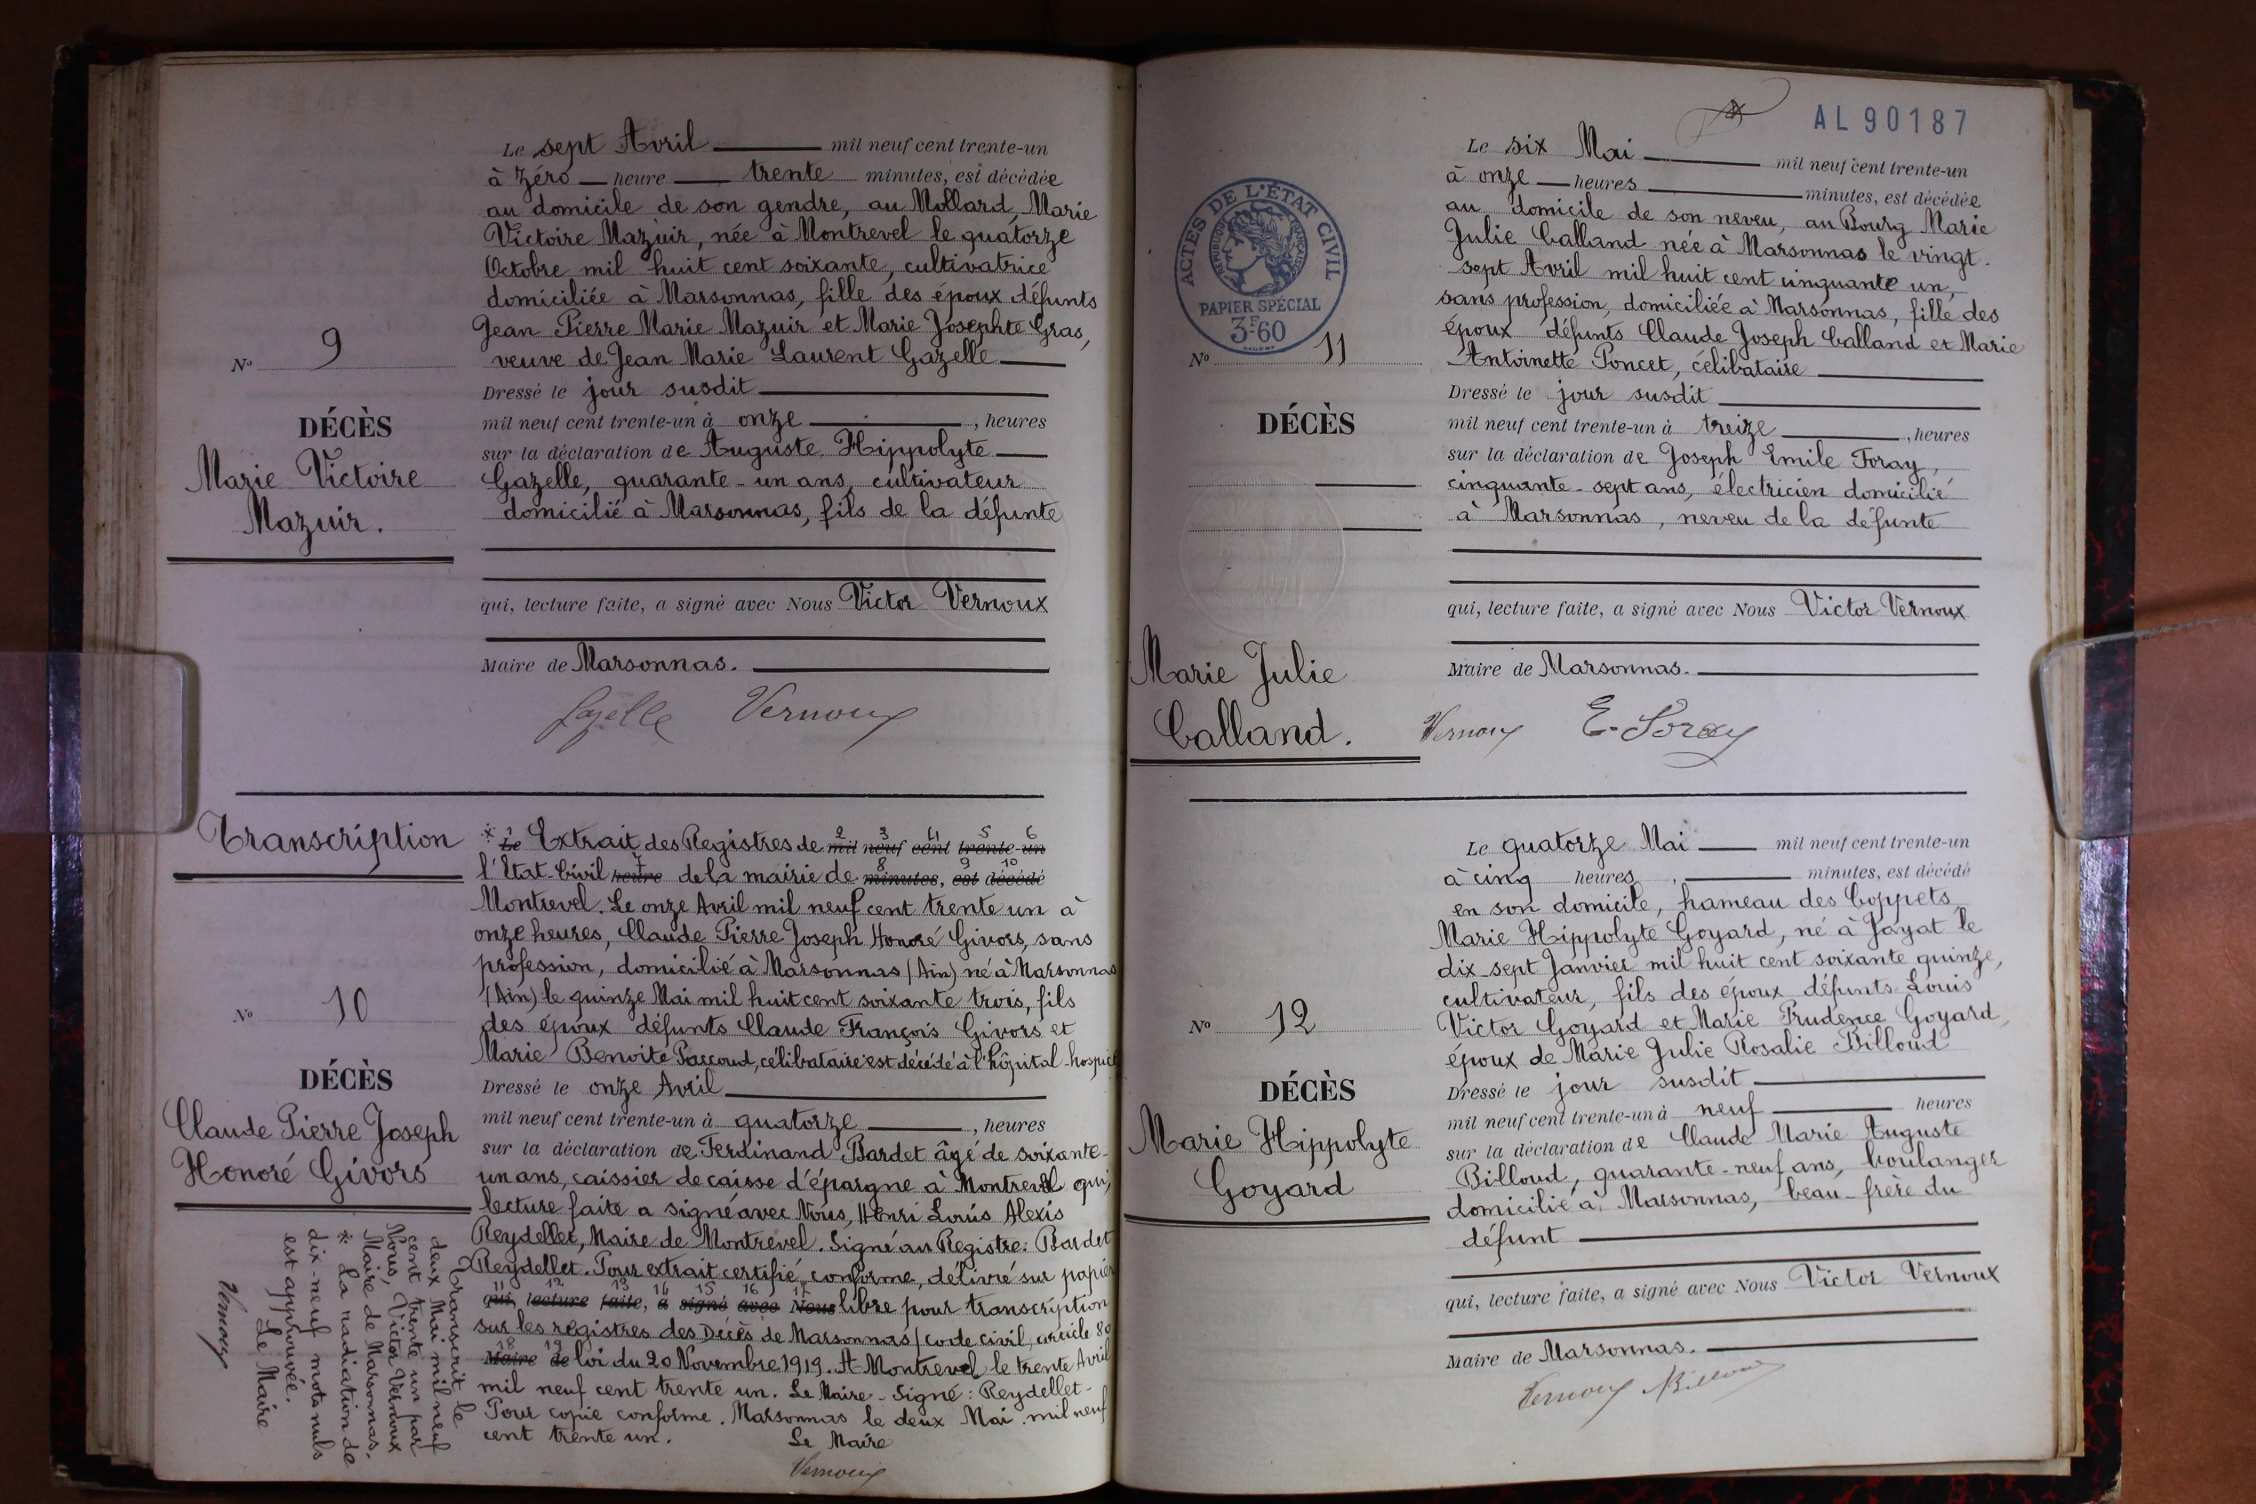 Le sept Avril mil neuf cent trente-un
à zéro heure trente minutes, est décédée
au domicile de son gendre, au Mollard, Marie
Victoire Mazuir, née à Montrevel le quatorze
Octobre mil huit cent soixante, cultivatrice
domiciliée à Marsonnas, fille des époux défunts
Jean Pierre Marie Mazuir et Marie Josephte Gras,
veuve de Jean Marie Laurent Gazelle
Nº 9
DÉCÈS
Marie Victoire
Mazuir.
Dressé le jour susdit
mil neuf cent trente-un à onze , heures
sur la déclaration de Auguste Hippolyte
Gazelle, quarante-un ans, cultivateur
domicilié à Marsonnas, fils de la défunte
qui, lecture faite, a signé avec Nous Victor Vernoux
Maire de Marsonnas.
Gazelle Vernoux
Transcription
Nº 10
DÉCÈS
Claude Pierre Joseph
Honoré Givors
* 1 2 3 4 5 6
Le Extrait des Registres de mil neuf cent trente-un
7 8 9 10
l'Etat-Civil heure de la mairie de minutes, est décédé
Montrevel. Le onze Avril mil neuf cent trente un à
onze heures, Claude Pierre Joseph Honoré Givors, sans
profession, domicilié à Marsonnas (Ain) né à Marsonnas
(Ain) le quinze Mai mil huit cent soixante trois, fils
des époux défunts Claude François Givors et
Marie Benoite Paccoud, célibataire est décédé à l'hôpital-hospice
Dressé le onze Avril
mil neuf cent trente-un à quatorze , heures
sur la déclaration de Ferdinand Bardet âgé de soixante-
un ans, caissier de caisse d'épargne à Montrevel qui,
lecture faite a signé avec Nous, Henri Louis Alexis
Reydellet, Maire de Montrevel. Signé au Registre: Bardet
Reydellet. Pour extrait certifié conforme, délivré sur papier
11 12 13 14 15 16 17
qui, lecture faite, a signé avec Nous libre pour transcription
sur les registres des Décès de Marsonnas (code civil, article 80
18 19
Maire de loi du 20 Novembre 1919. A Montrevel le trente Avril
mil neuf cent trente un. Le Maire - Signé: Reydellet-
Pour copie conforme. Marsonnas le deux Mai mil neuf
cent trente un.
Le Maire
Vernoux
Transcrit le
deux Mai mil neuf
cent trente un par
Nous, Victor Vernoux
Maire de Marsonnas.
* La radiation de
dix-neuf mots nuls
est approuvée.
Le Maire
Vernoux
AL 90187
ACTES DE L'ÉTAT CIVIL
RÉPUBLIQUE FRANÇAISE
PAPIER SPÉCIAL
3F60
Nº 11
DÉCÈS
Marie Julie
Calland.
Le six Mai mil neuf cent trente-un
à onze heures minutes, est décédée
au domicile de son neveu, au Bourg Marie
Julie Calland née à Marsonnas le vingt-
sept Avril mil huit cent cinquante un,
sans profession, domiciliée à Marsonnas, fille des
époux défunts Claude Joseph Calland et Marie
Antoinette Poncet, célibataire
Dressé le jour susdit
mil neuf cent trente-un à treize , heures
sur la déclaration de Joseph Emile Foray,
cinquante-sept ans, électricien domicilié
à Marsonnas, neveu de la défunte
qui, lecture faite, a signé avec Nous Victor Vernoux
Maire de Marsonnas.
Vernoux E. Foray
Nº 12
DÉCÈS
Marie Hippolyte
Goyard
Le quatorze Mai mil neuf cent trente-un
à cinq heures , minutes, est décédé
en son domicile, hameau des Coppets
Marie Hippolyte Goyard, né à Jayat le
dix-sept Janvier mil huit cent soixante quinze,
cultivateur, fils des époux défunts Louis
Victor Goyard et Marie Prudence Goyard,
époux de Marie Julie Rosalie Billoud
Dressé le jour susdit
mil neuf cent trente-un à neuf heures
sur la déclaration de Claude Marie Auguste
Billoud, quarante-neuf ans, boulanger
domicilié à Marsonnas, beau-frère du
défunt
qui, lecture faite, a signé avec Nous Victor Vernoux
Maire de Marsonnas.
Vernoux Billoud